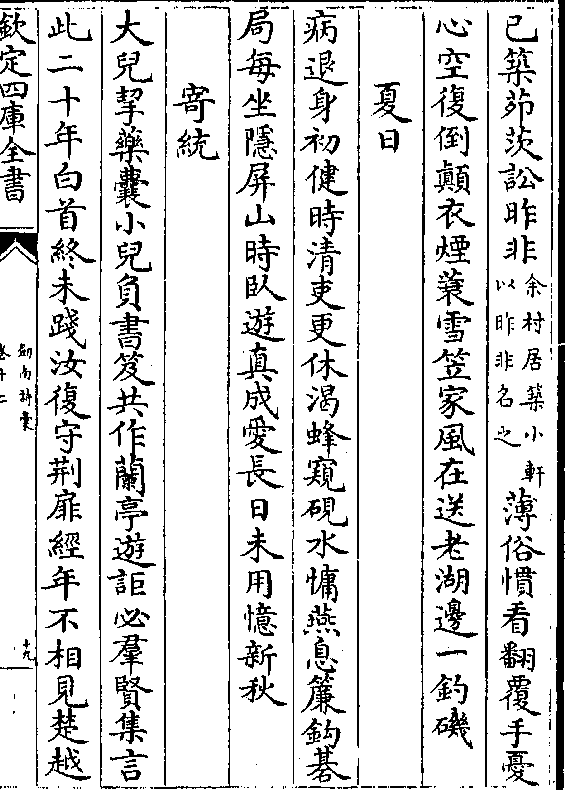 已築茆茨訟昨非余村居築小軒以昨非名之薄俗慣看翻覆手憂
心空復倒顛衣煙蓑雪笠家風在送老湖邊一釣磯
夏日
病退身初健時清吏更休渴蜂窺硯水慵燕息簾鈎碁
局每坐隱屏山時臥遊真成愛長日未用憶新秋
寄統
大兒挈藥囊小兒負書笈共作蘭亭遊詎必羣賢集言
此二十年白首終未踐汝復守荆扉經年不相見楚越
欽定四庫全書
劍南詩稾
十九